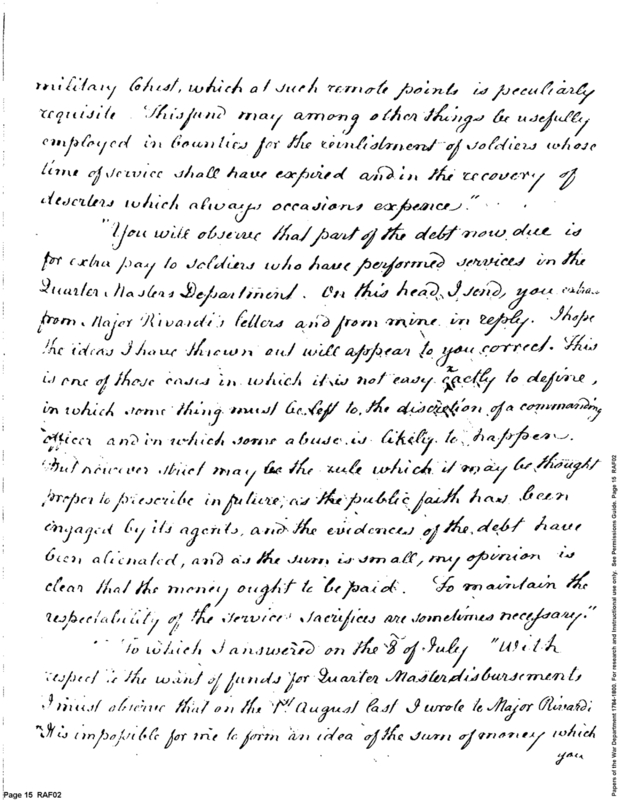 military Chest, which at such remote points is peculiarly
requisite. This fund may among other things be usefully
employed in bounties for the reinlistment of soldiers whose
time of service shall have expired and in the recovery of
deserters which always occasions expence."
"You will observe that part of the debt now due is
for extra pay to soldiers who have performed services in the
Quarter Masters Department. On this head, I send, you extra
from Major Rivardi's letters and from mine in reply. I hope
the ideas I have thrown out will appear to you correct. This
is one of those cases in which it is not easy exactly to define,
in which some thing must be left to the discretion of a commanding
officer and in which some abuse is likely to happen.
But however strict may be the rule which it may be thought
proper to prescribe in future, as the public faith has been
engaged by its agents, and the evidences of the debt have
been alienated, and as the sum is small, my opinion is
clear that the money ought to be paid. To maintain the
respectability of the service sacrifices are sometimes necessary."
To which I answered on the 8th of July "With
respect to the want of funds for Quarter Master disbursements
I must observe that on the 1st August last I wrote to Major Rivardi
"It is impossible for me to form an idea of the sum of money which
you
Page 15 RAF02
Papers of the War Department 1784-1803. For research and instructional use only. See Permissions Guide. Page 15 RAF02